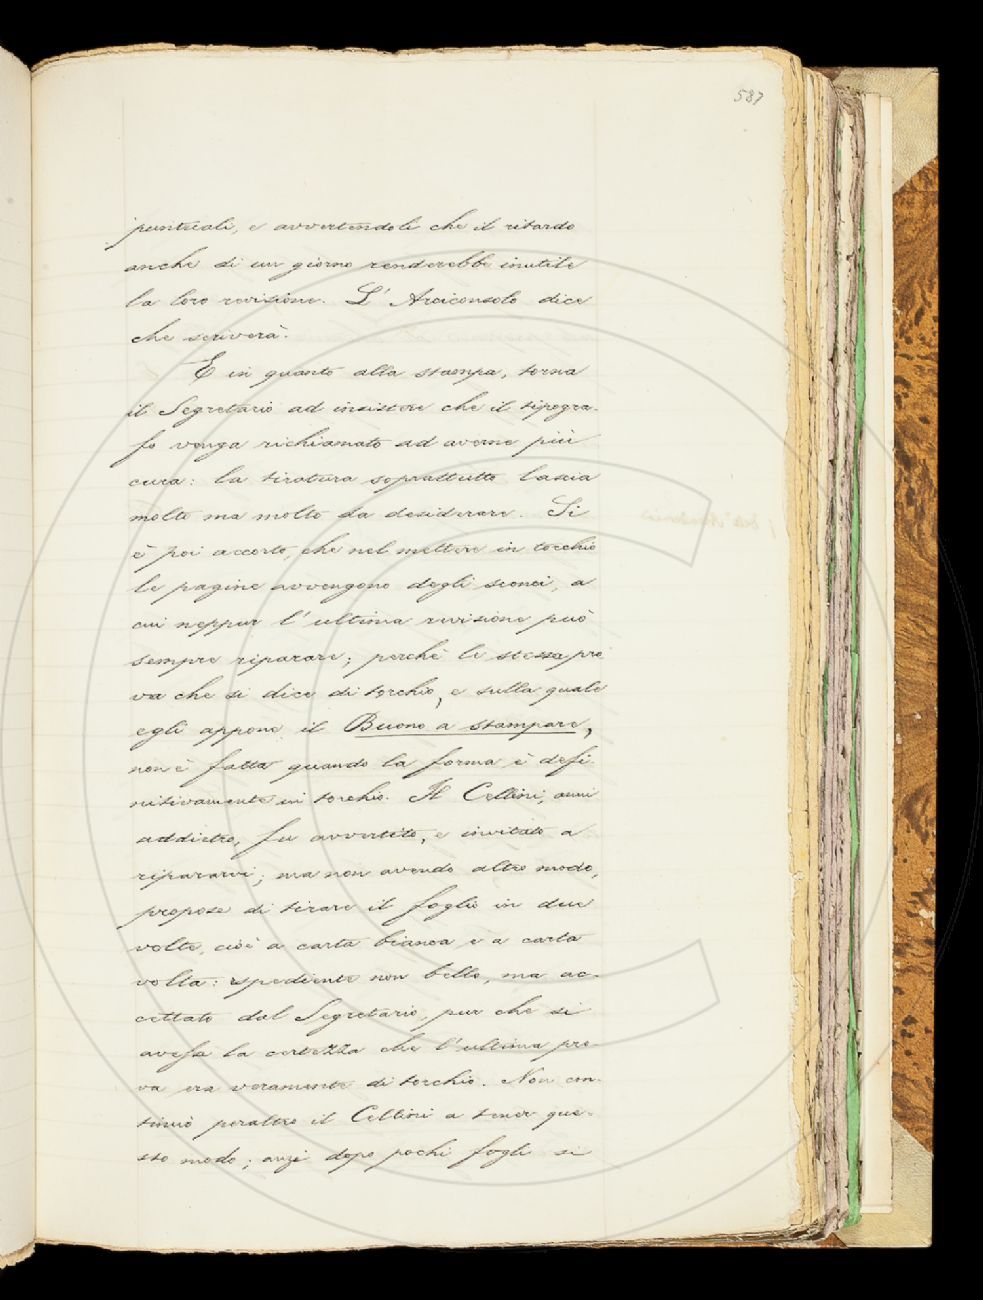 587
puntuali, e avvertendoli che il ritardo
anche di un giorno renderebbe inutile
la loro revisione. L' Arciconsolo dice
che scriverà.
E in quanto alla stampa, torna
il Segretario ad insistere che il tipogra-
fo venga richiamato ad averne più
cura: la tiratura soprattutto lascia
molto ma molto da desiderare. Si
è poi accorto, che nel mettere in torchio
le pagine avvengono degli sconci, a
cui neppur l' ultima revisione può
sempre riparare; perchè la stessa pro
va che si dice di torchio, e sulla quale
egli appone il Buono a stampare,
non è fatta quando la forma è defi-
nitivamente in torchio. Il Cellini, anni
addietro, fu avvertito, e invitato a
ripararvi; ma non avendo altro modo,
propose di tirare il foglio in due
volte, cioè a carta bianca e a carta
volta: spediente non bello, ma ac-
cettato dal Segretario, pur che si
avesse la certezza che l' ultima pro-
va era veramente di torchio. Non con-
tinuò peraltro il Cellini a tener que-
sto modo; anzi dopo pochi fogli si